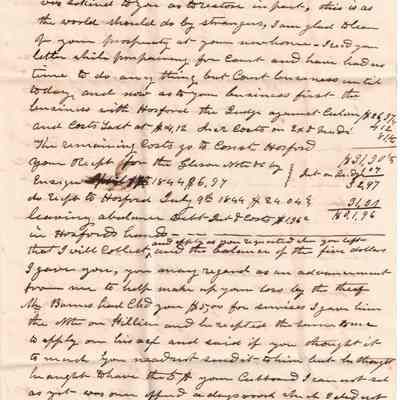 was so kind to you as to restore in part, this is as
the world should do by strangers, I am glad to hear
of your prosperity at your new home - I rec'd your
letter while preparing for Court and have had no
time to do any thing but Court business until
today, and now as to your business first the
business with Hosford the Judge against
and Costs Taxt at $4,12 Costs on
The remaining Costs go to Const. Hosford
your Rect for the Note &c by
Ensign 1844 $6,97
do Rect to Hosford July 9th 1844 $24.04
leaving a balance Debt Int & Costs
in Hosfords hands
that I will Collect, and apply as you requested when you left
and the balance of the five dollars
I gave you, you may regard as an advancement
from me to help make up your loss by the theft
Mr Barns had Chd you $5,00 for services I gave him
the Note on Hillier and he recpted the same to me
to apply on his acf and said if you thought it
to much you need not send it to him but he thought
he ought to have the 5 $ your I can not sell
as yet was one offered a days work which I did not